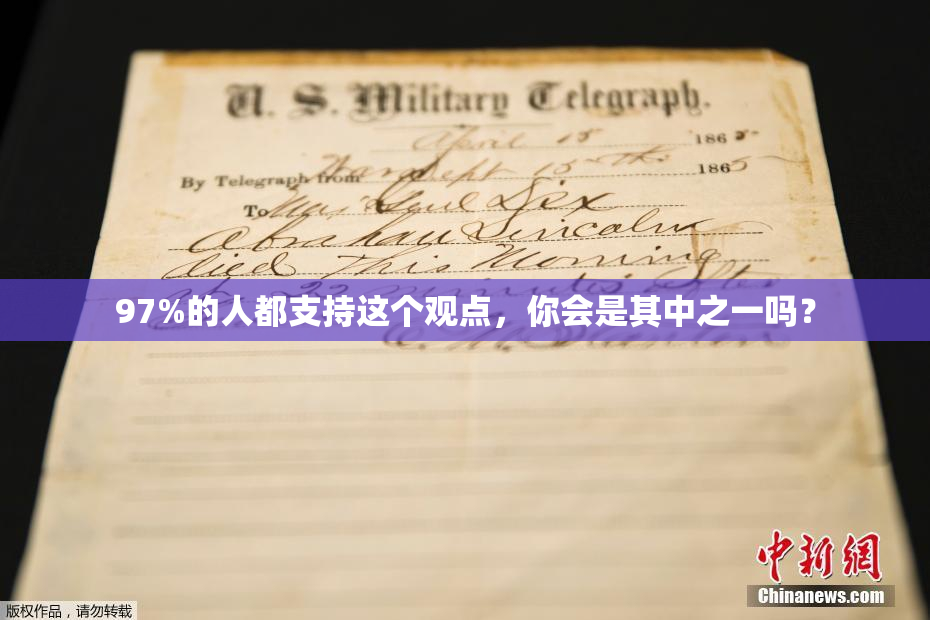 U. S. Military Telegraph.
April 15 1865
By Telegraph from War Dept 15th 1865
To Maj Genl Dix
Abraham Lincoln
died This Morning
at 22 minutes after
97%的人都支持这个观点，你会是其中之一吗？
E. M. Stanton
中新網
Chinanews.com
版权作品，请勿转载